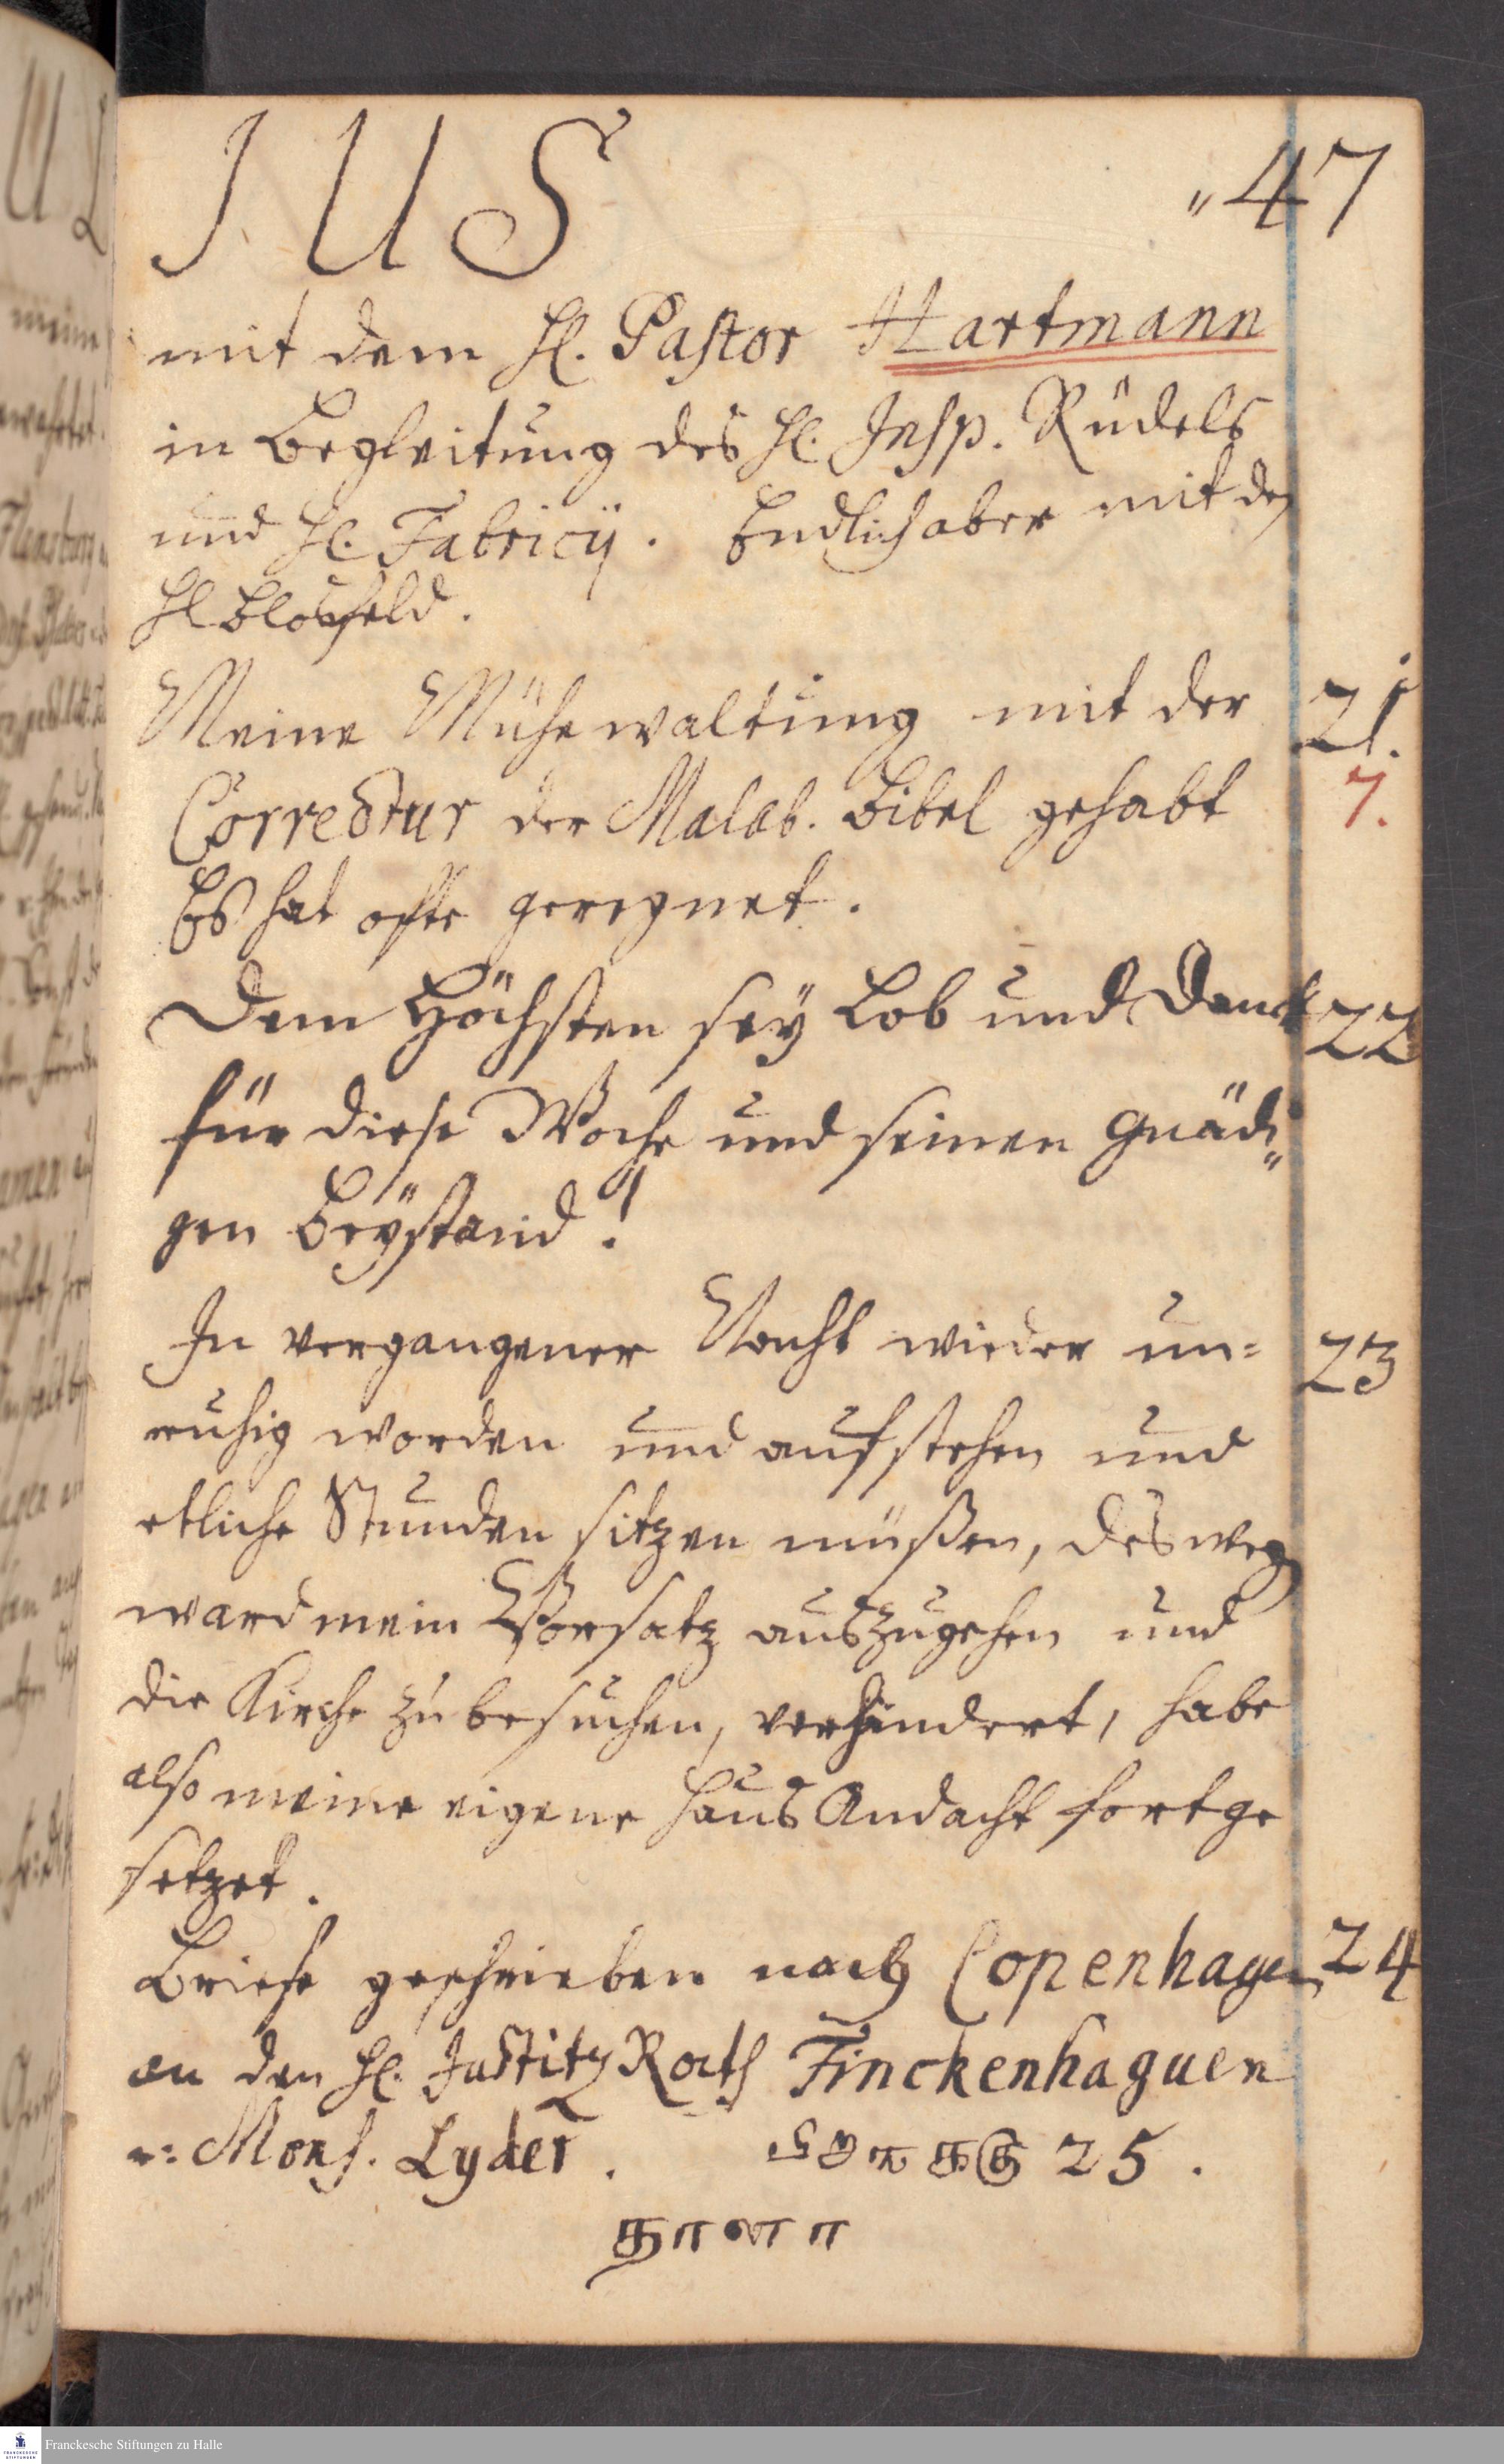 JUS "47
mit dem H. Pastor Hartmann
in Begleitung des H. Insp. Rüdels
und H. Fabricij. Endlich aber mit den
H. Blosfeld.
Meine Mühewaltung mit der 21.
Correctur der Malab. Bibel gehabt 7.
Es hat offte geregnet.
Dem Höchsten sey Lob und Danck 22
für diese Woche und seinen gnädi„
gen Beystand!
In vergangener Nacht wieder un= 23
ruhig worden und aufstehen und
etliche Stunden sitzen müßen, deswegen
ward mein Vorsatz auszugehen und
die Kirche zu besuchen, verhindert, habe
also meine eigene Haus Andacht fortge
setzet.
Briefe geschrieben nach Copenhagen 24
an den H. Justitz Rath Finckenhaguen
u: Mons. Lyder. 25.
Franckesche Stiftungen zu Halle